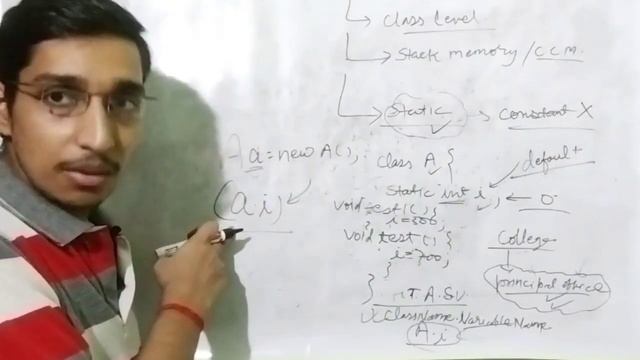 class Level
Stack memory / C C M.
Static → constant X
A a = new A();
class A {
default
static int i; ← 0
(a.i)
void test() {
i=500;
}
void test() {
i=700;
}
}
College
principal office
T. A. SV
X ClassName.VariableName
A.i